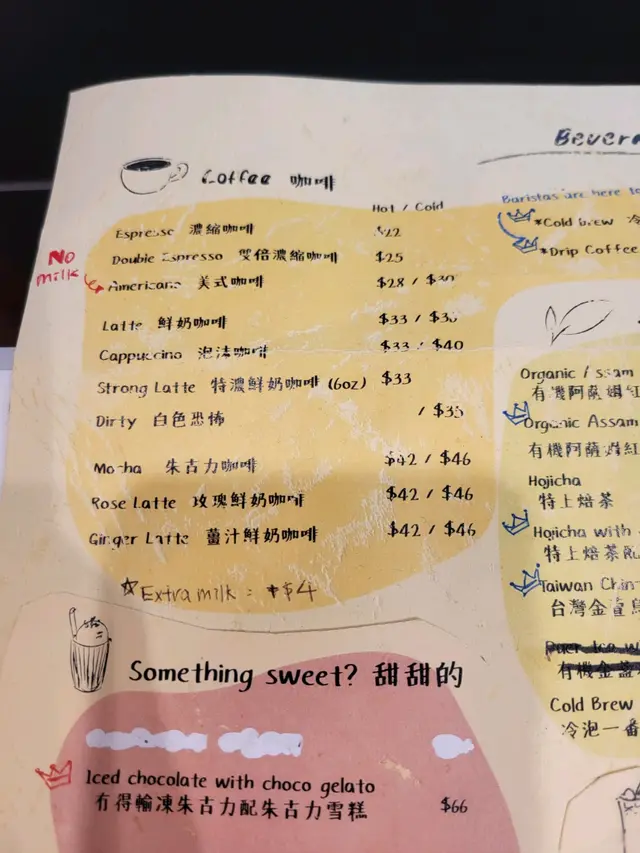 Coffee 咖啡
Hot / Cold
Espresso 濃縮咖啡 $22
Double Espresso 雙倍濃縮咖啡 $25
No milk
Americano 美式咖啡 $28 / $30
Latte 鮮奶咖啡 $33 /
Cappuccino 泡沫咖啡 $33 / $40
Strong Latte 特濃鮮奶咖啡 (6oz) $33
Dirty 白色恐怖 /
Mocha 朱古力咖啡 $42 / $46
Rose Latte 玫瑰鮮奶咖啡 $42 / $46
Ginger Latte 薑汁鮮奶咖啡 $42 / $46
☆Extra milk : +$4
Something sweet? 甜甜的
Iced chocolate with choco gelato
冇得輸凍朱古力配朱古力雪糕 $66
Baristas are here
*Cold brew 冷
*Drip Coffee
Organic
有機阿薩姆紅
Organic Assam
有機阿薩姆紅
Hojicha
特上焙茶
Hojicha with
特上焙茶
Taiwan
台灣金萱
Cold Brew
冷泡一番